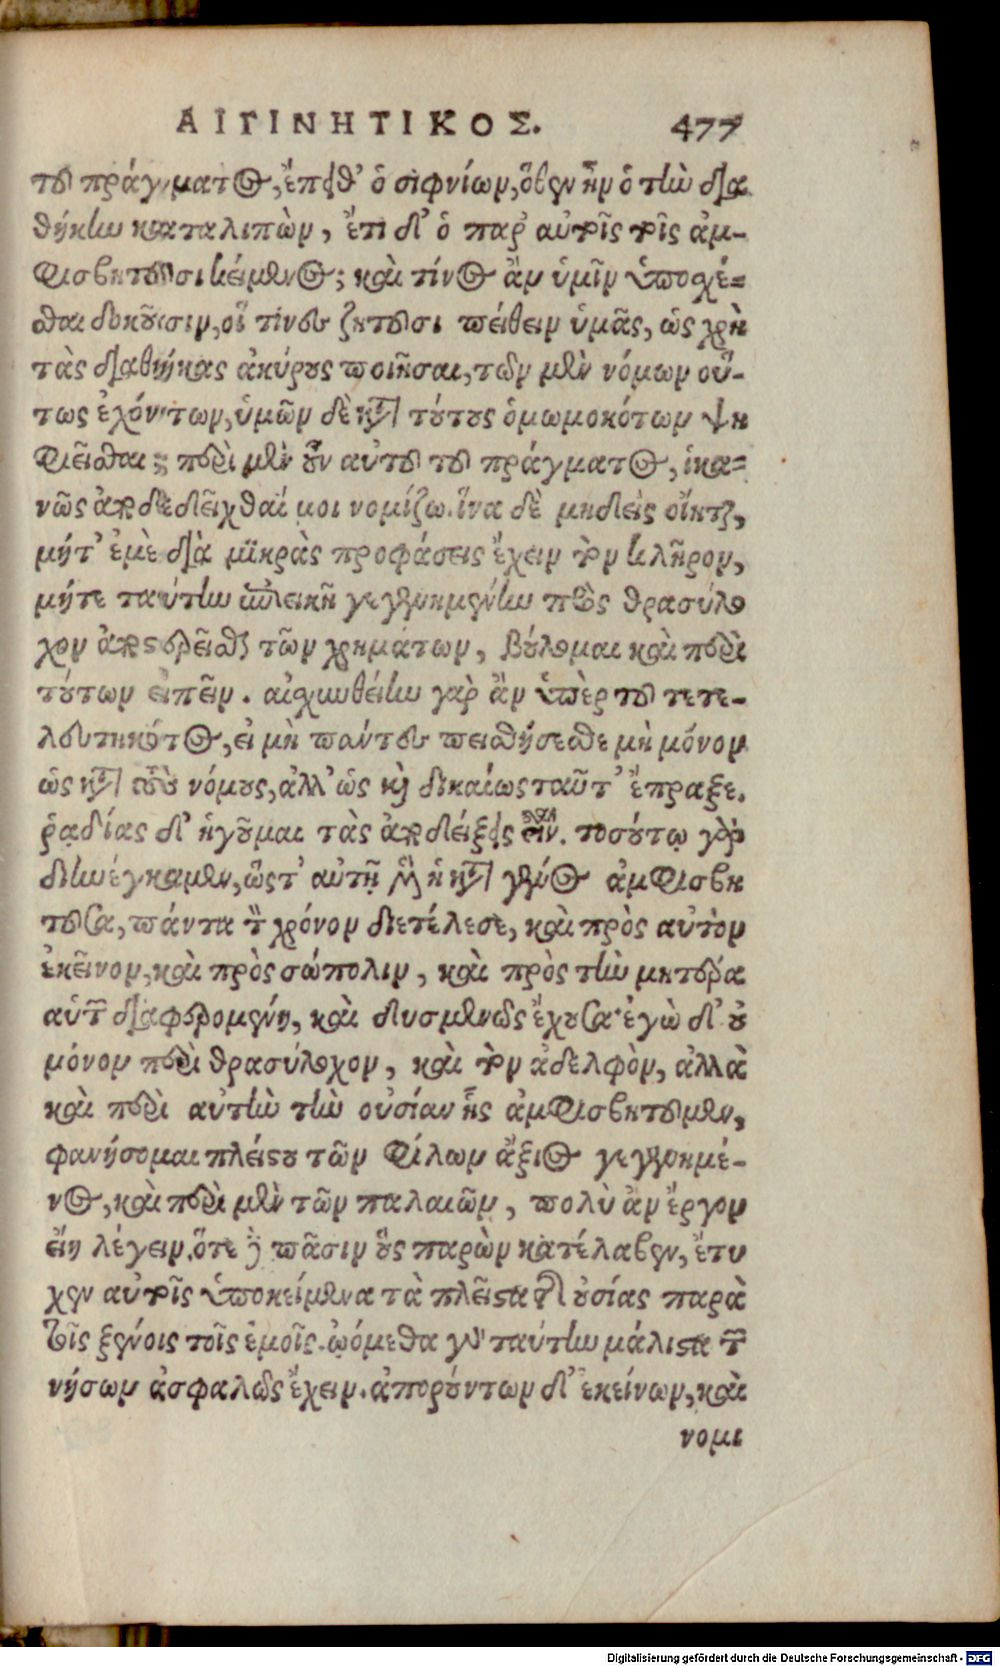 ΑΙΓΙΝΗΤΙΚΟΣ. 477
τοῦ πράγματος, ἔπειθ' ὁ σιφνίων, ὅθεν ἦν ὁ τὴν δια
θήκην καταλιπὼν, ἔτι δ' ὁ παρ' αὐτοῖς τοῖς ἀμ-
φισβητοῦσι κείμενος; καὶ τίνος ἂν ὑμῖν ὑποσχέ-
σθαι δοκοῦσιν, οἵ τινες ζητοῦσι πείθειν ὑμᾶς, ὡς χρὴ
τὰς διαθήκας ἀκύρους ποιῆσαι, τῶν μὲν νόμων οὕ-
τως ἐχόντων, ὑμῶν δὲ κατὰ τούτους ὁμωμοκότων ψη
φιεῖσθαι; περὶ μὲν οὖν αὐτοῦ τοῦ πράγματος, ἱκα-
νῶς ἀποδεδεῖχθαί μοι νομίζω. ἵνα δὲ μηδεὶς οἴηται,
μήτ' ἐμὲ διὰ μικρὰς προφάσεις ἔχειν τὸν κλῆρον,
μήτε ταύτην ἐπιεικῆ γεγενημένην πρὸς θρασύλο
χον ἀποστερεῖσθαι τῶν χρημάτων, βούλομαι καὶ περὶ
τούτων εἰπεῖν. αἰσχυνθείην γὰρ ἂν ὑπὲρ τοῦ τετε-
λευτηκότος, εἰ μὴ πάντες πεισθήσεσθε μὴ μόνον
ὡς κατὰ τοὺς νόμους, ἀλλ' ὡς καὶ δικαίως ταῦτ' ἔπραξε.
ῥᾳδίας δ' ἡγοῦμαι τὰς ἀποδείξεις εἶναι. τοσούτῳ γὰρ
διηνέγκαμεν, ὥστ' αὐτὴ μὲν ἡ κατὰ γένος ἀμφισβη
τοῦσα, πάντα τὸν χρόνον διετέλεσε, καὶ πρὸς αὐτὸν
ἐκεῖνον, καὶ πρὸς σώπολιν, καὶ πρὸς τὴν μητέρα
αὐτῶν διαφερομένη, καὶ δυσμενῶς ἔχουσα· ἐγὼ δ' οὐ
μόνον περὶ θρασύλοχον, καὶ τὸν ἀδελφὸν, ἀλλὰ
καὶ περὶ αὐτὴν τὴν οὐσίαν ἧς ἀμφισβητοῦμεν,
φανήσομαι πλείστου τῶν φίλων ἄξιος γεγενημέ-
νος, καὶ περὶ μὲν τῶν παλαιῶν, πολὺ ἂν ἔργον
εἴη λέγειν, ὅτε δὲ πᾶσιν οὓς παρὼν κατέλαβεν, ἔτυ
χεν αὐτοῖς ὑποκείμενα τὰ πλεῖστα τῆς οὐσίας παρὰ
τοῖς ξένοις τοῖς ἐμοῖς. ᾠόμεθα γὰρ ταύτην μάλιστα τῶν
νήσων ἀσφαλῶς ἔχειν. ἀπορούντων δ' ἐκείνων, καὶ
νομι
Digitalisierung gefördert durch die Deutsche Forschungsgemeinschaft - DFG